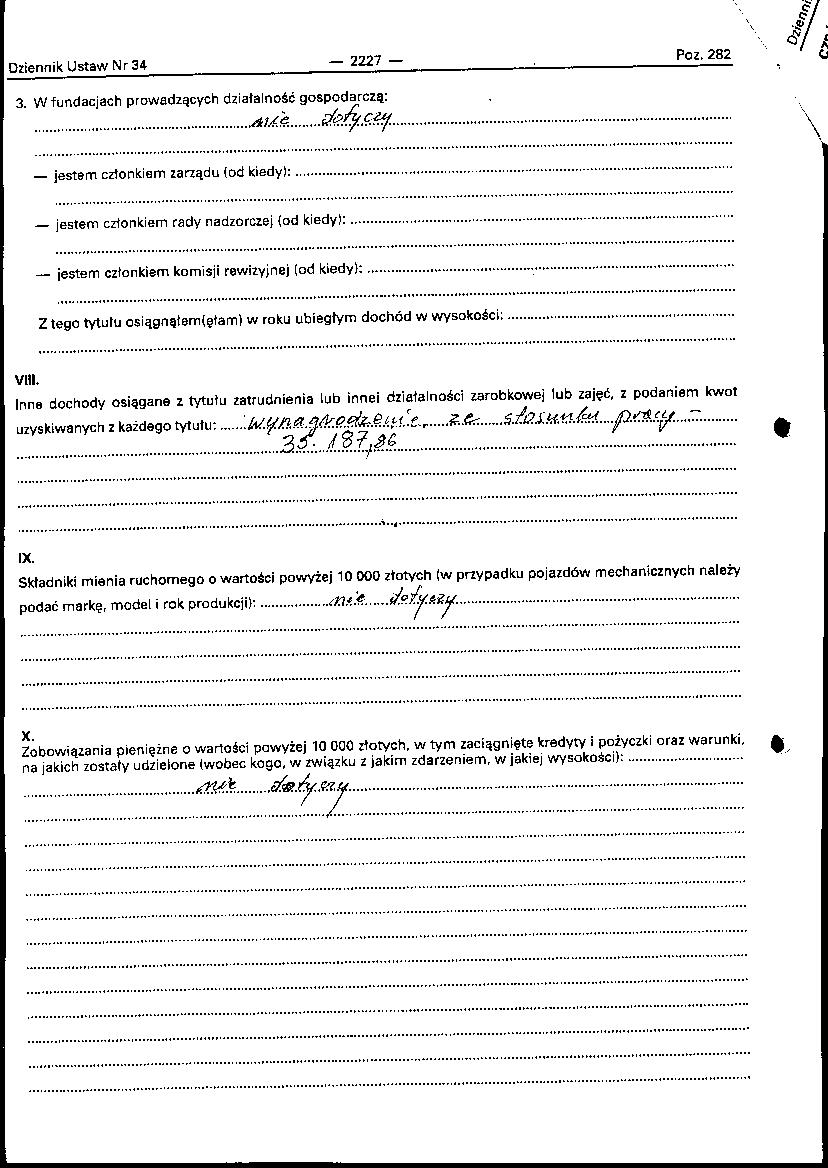 Dziennik Ustaw Nr 34 — 2227 — Poz. 282
3. W fundacjach prowadzących działalność gospodarczą:
nie dotyczy
— jestem członkiem zarządu (od kiedy):
— jestem członkiem rady nadzorczej (od kiedy):
— jestem członkiem komisji rewizyjnej (od kiedy):
Z tego tytułu osiągnąłem(ęłam) w roku ubiegłym dochód w wysokości:
VIII.
Inne dochody osiągane z tytułu zatrudnienia lub innej działalności zarobkowej lub zajęć, z podaniem kwot
uzyskiwanych z każdego tytułu: wynagrodzenie ze stosunku pracy –
35.187,86
IX.
Składniki mienia ruchomego o wartości powyżej 10 000 złotych (w przypadku pojazdów mechanicznych należy
podać markę, model i rok produkcji): nie dotyczy
X.
Zobowiązania pieniężne o wartości powyżej 10 000 złotych, w tym zaciągnięte kredyty i pożyczki oraz warunki,
na jakich zostały udzielone (wobec kogo, w związku z jakim zdarzeniem, w jakiej wysokości):
nie dotyczy
Dzienni